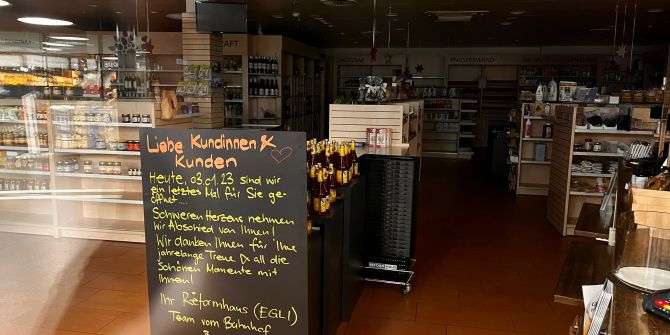 Liebe Kundinnen &
Kunden
Heute, 03.01.23 sind wir
ein letztes Mal für Sie ge-
öffnet....
Schweren Herzens nehmen
wir Abschied von Ihnen!
Wir danken Ihnen für Ihre
jahrelange Treue & all die
schönen Momente mit
Ihnen!
Ihr Reformhaus (EGLI)
Team vom Bahnhof